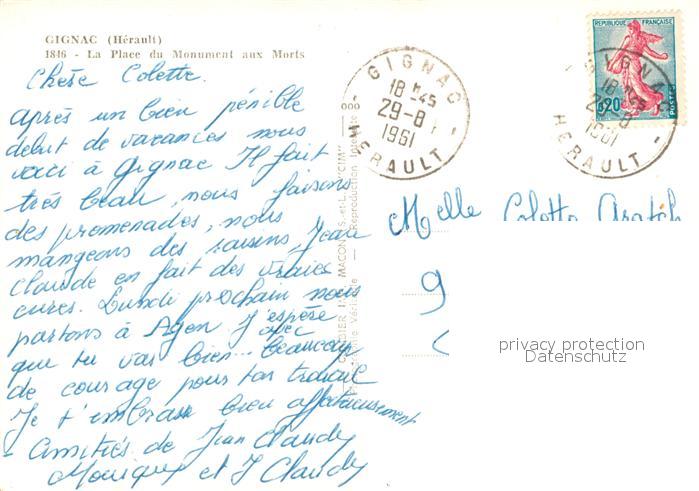 GIGNAC (Hérault)
1846 - La Place du Monument aux Morts
Chère Colette.
après un bien pénible
début de vacances nous
voici à Gignac Il fait
très beau, nous faisons
des promenades, nous
mangeons des raisins, Jean
Claude en fait des vraies
cures. Lundi prochain nous
partons à Agen J'espère
que tu vas bien... avec beaucoup
de courage pour ton travail
Je t'embrasse bien affectueusement
- Amitiés de Jean Claude
Monique et J Claude
GIGNAC
18H-45
29-8
1961
HERAULT
REPUBLIQUE FRANÇAISE
0,20
POSTES
GIGNAC
18H-45
29-8
1961
HERAULT
Melle Colette
9
privacy protection
Datenschutz
MACON
"CIM"
Reproduction Interdite